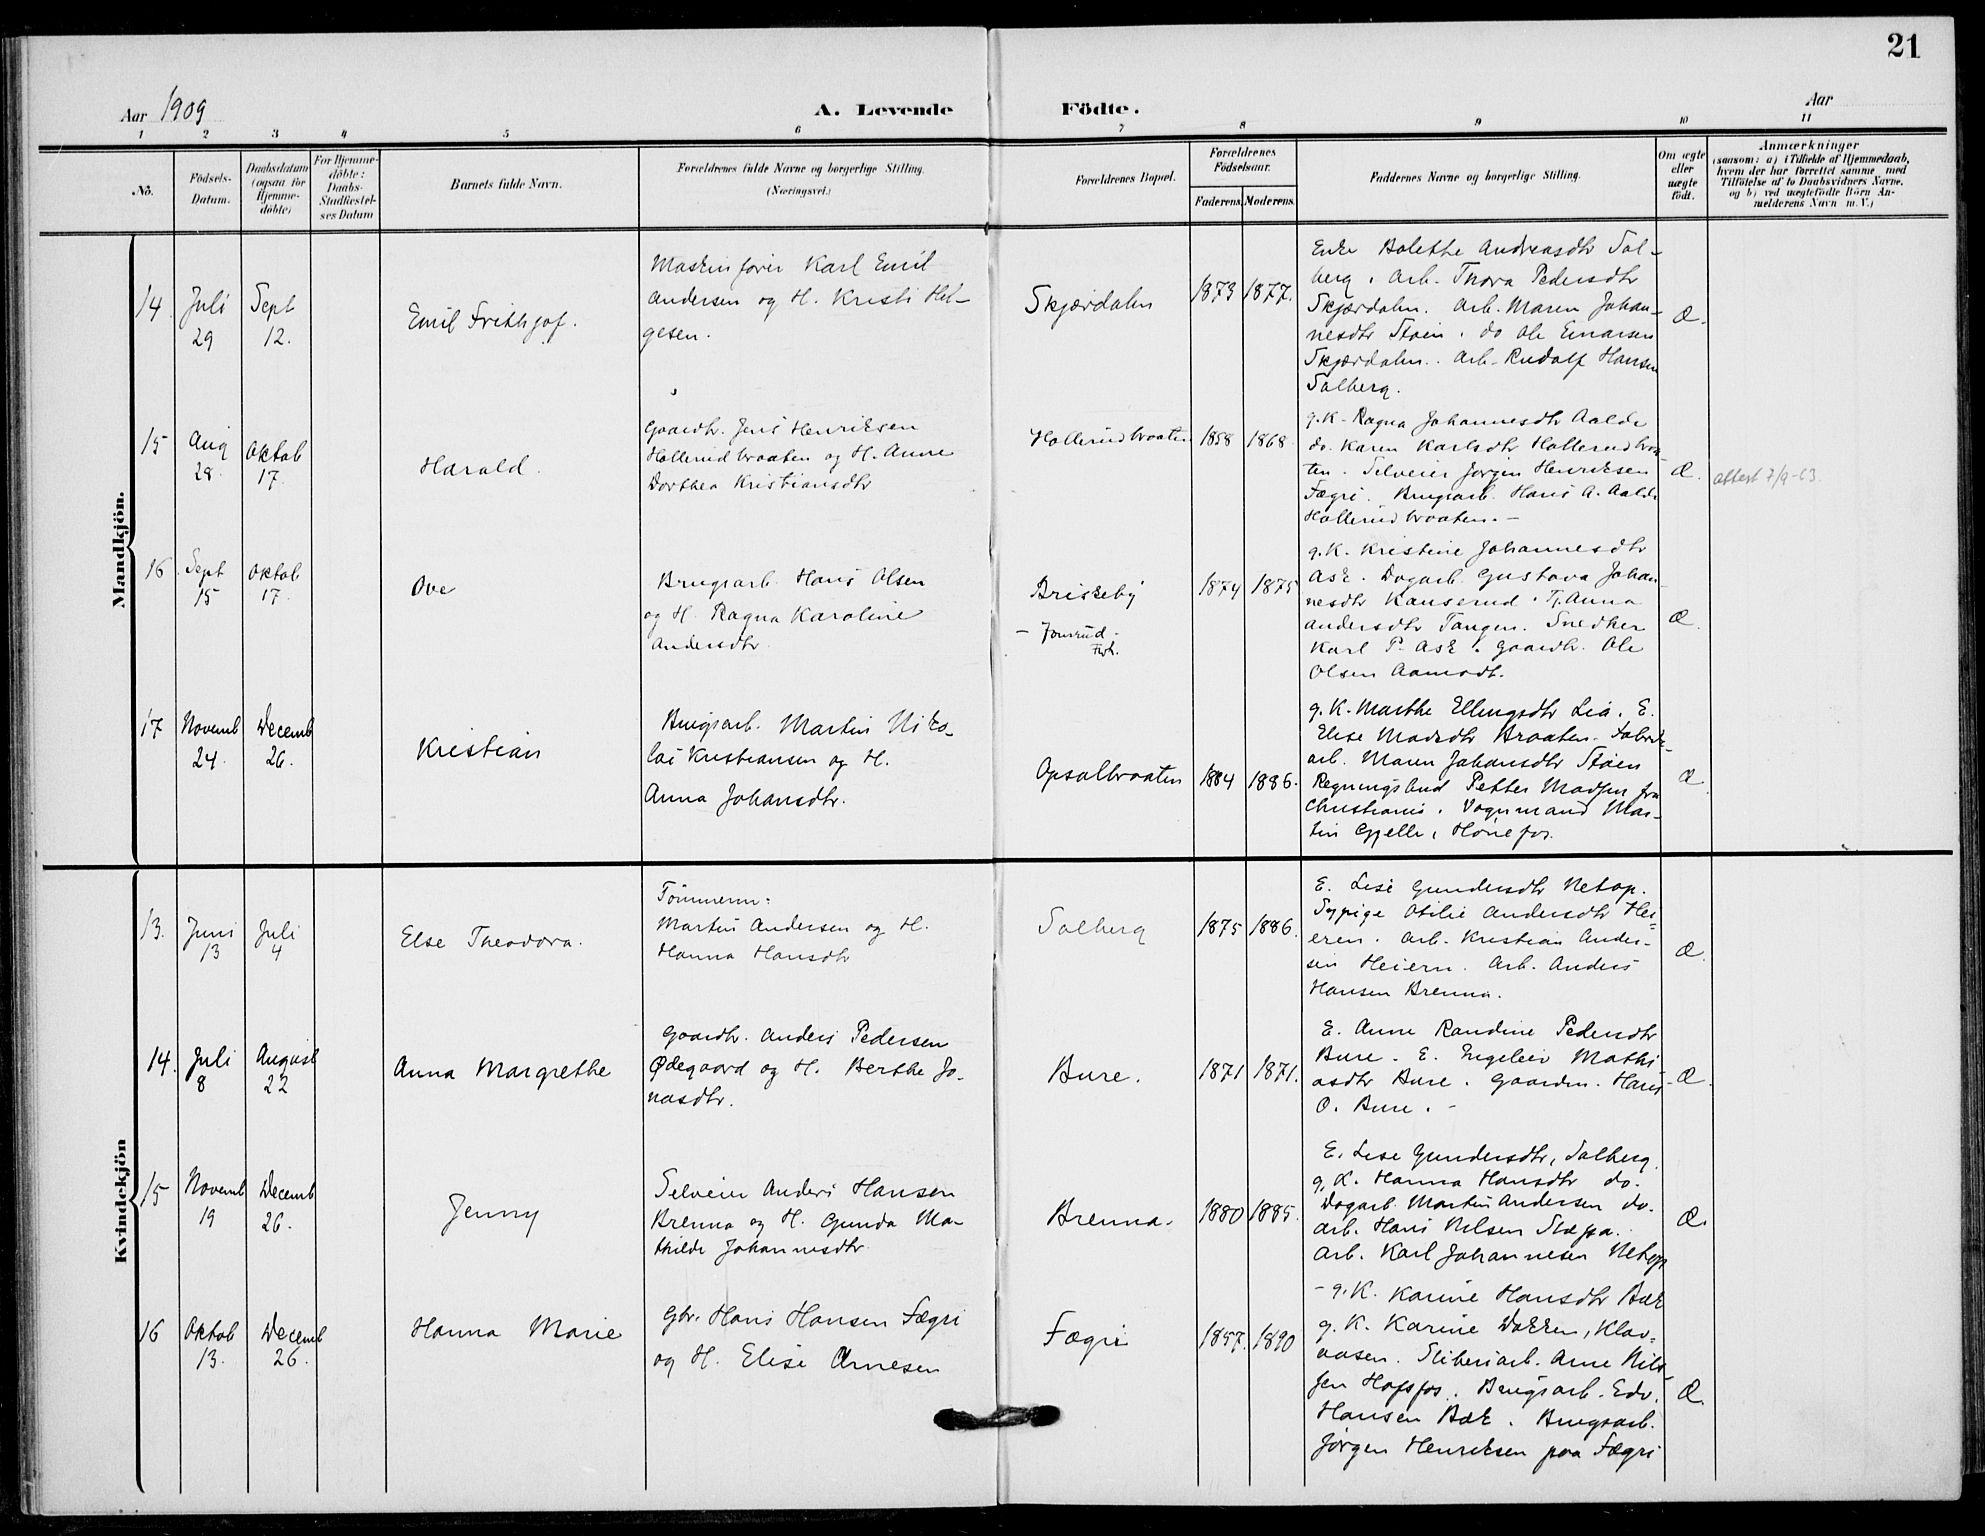 21
Aar 1909
A. Levende Födte.
Aar
1 2 3 4 5 6 7 8 9 10 11
No.
Födsels-
Datum.
Daabsdatum
(ogsaa for
Hjemme-
döbte)
For Hjemme-
döbte:
Daabs-
Stadfæstel-
ses Datum
Barnets fulde Navn.
Forældrenes fulde Navne og borgerlige Stilling.
(Næringsvei.)
Forældrenes Bopæl.
Forældrenes
Födselsaar.
Faderens. Moderens.
Faddernes Navne og borgerlige Stilling.
Om ægte
eller
uægte
födt.
Anmærkninger
(saasom: a) i Tilfælde af Hjemmedaab,
hvem der har forrettet samme, med
Tilföielse af to Daabsvidners Navne,
og b) ved uægtefödte Börn An-
melderens Navn m. V.)
Mandkjön.
14.
Juli
29
Sept
12.
Emil Frithjof.
Maskinfører Karl Emil
Andersen og H. Kristi Hel-
gesen.
Skjærdalen
1873 1877.
Enke Bolette Andreasdtr Sol-
berg, Arb. Thora Pedersdtr
Skjærdalen. Arb. Maren Johan-
nesdtr Støen. do Ole Einarsen
Skjærdalen. Arb. Rudolf Hansen
Solberg.
Æ.
15
Aug
28.
Oktob
17.
Harald.
Gaardbr. Jens Henriksen
Hollerudbraaten og H. Anne
Dorthea Kristiansdtr
Hollerudbraaten
1858 1868.
g.K. Ragna Johannesdtr Aalde
do. Karen Karlsdtr Hollerudbraa-
ten. Selveier Jørgen Henriksen
Fægri. Brugsarb. Hans A. Aalde
Hollerudbraaten. -
Æ.
attest 7/9-63.
16
Sept
15
Oktob
17.
Ove
Brugsarb. Hans Olsen
og H. Ragna Karoline
Andersdtr.
Briskeby
- Jonsrud -
1874 1875
g.K. Kristine Johannesdtr
Ask. Dagarb. Gustava Johan-
nesdtr Kanserud. Tj. Anna
Andersdtr Tangen. Snedker
Karl P. Ask. Gaardbr. Ole
Olsen Aamodt.
Æ.
17
Novemb
24.
Decemb
26.
Kristian
Brugsarb. Martin Niko-
lai Kristiansen og H.
Anna Johansdtr.
Opsalbraaten
1884 1886.
g.K. Marthe Ellingsdtr Lia. E.
Elise Madsdtr Braaten. Fabrik-
arb. Maren Johansdtr Støen
Regningsbud Petter Madsen fra
Christiania. Vognmand Mar-
tin Gjelle, Hønefos.
Æ.
Kvindekjön
13.
Juni
13
Juli
4
Else Theodora.
Tømmerm:
Martin Andersen og H.
Hanna Hansdtr
Solberg
1875 1886.
E. Lise Gundersdtr Netop.
Sypige Otilie Andersdtr Hei=
eren. Arb. Kristian Ander-
sen Heiern. Arb. Anders
Hansen Brenna.
Æ.
14.
Juli
8
August
22
Anna Margrethe
Gaardbr. Anders Pedersen
Ødegaard og H. Berthe Jo-
nasdtr.
Bure.
1871 1871.
E. Anne Randine Pedersdtr
Bure. E. Engeleiv Mathi-
asdtr Bure. Gaardm. Hans
O. Bure. -
Æ.
15
Novemb
19
Decemb
26.
Jenny
Selveier Anders Hansen
Brenna og H. Gunda Ma-
thilde Johannesdtr.
Brenna.
1880 1885.
E. Lise Gundersdtr, Solberg.
g.K. Hanna Hansdtr do.
Dagarb. Martin Andersen do.
Arb. Hans Nilsen
Arb. Karl Johannesen Netop
Æ.
16
Oktob
13.
Decemb
26.
Hanna Marie
Gbr. Hans Hansen Fægri
og H. Elise Arnesen
Fægri
1857. 1890
- g.K. Karine Hansdtr Bæk
g.K. Karine Dokken, Klov=
aasen. Sliberiarb. Arne Nils-
sen Hofsfos. Brugsarb. Edv.
Hansen Bæk. Brugsarb.
Jørgen Henriksen paa Fægri
Æ.